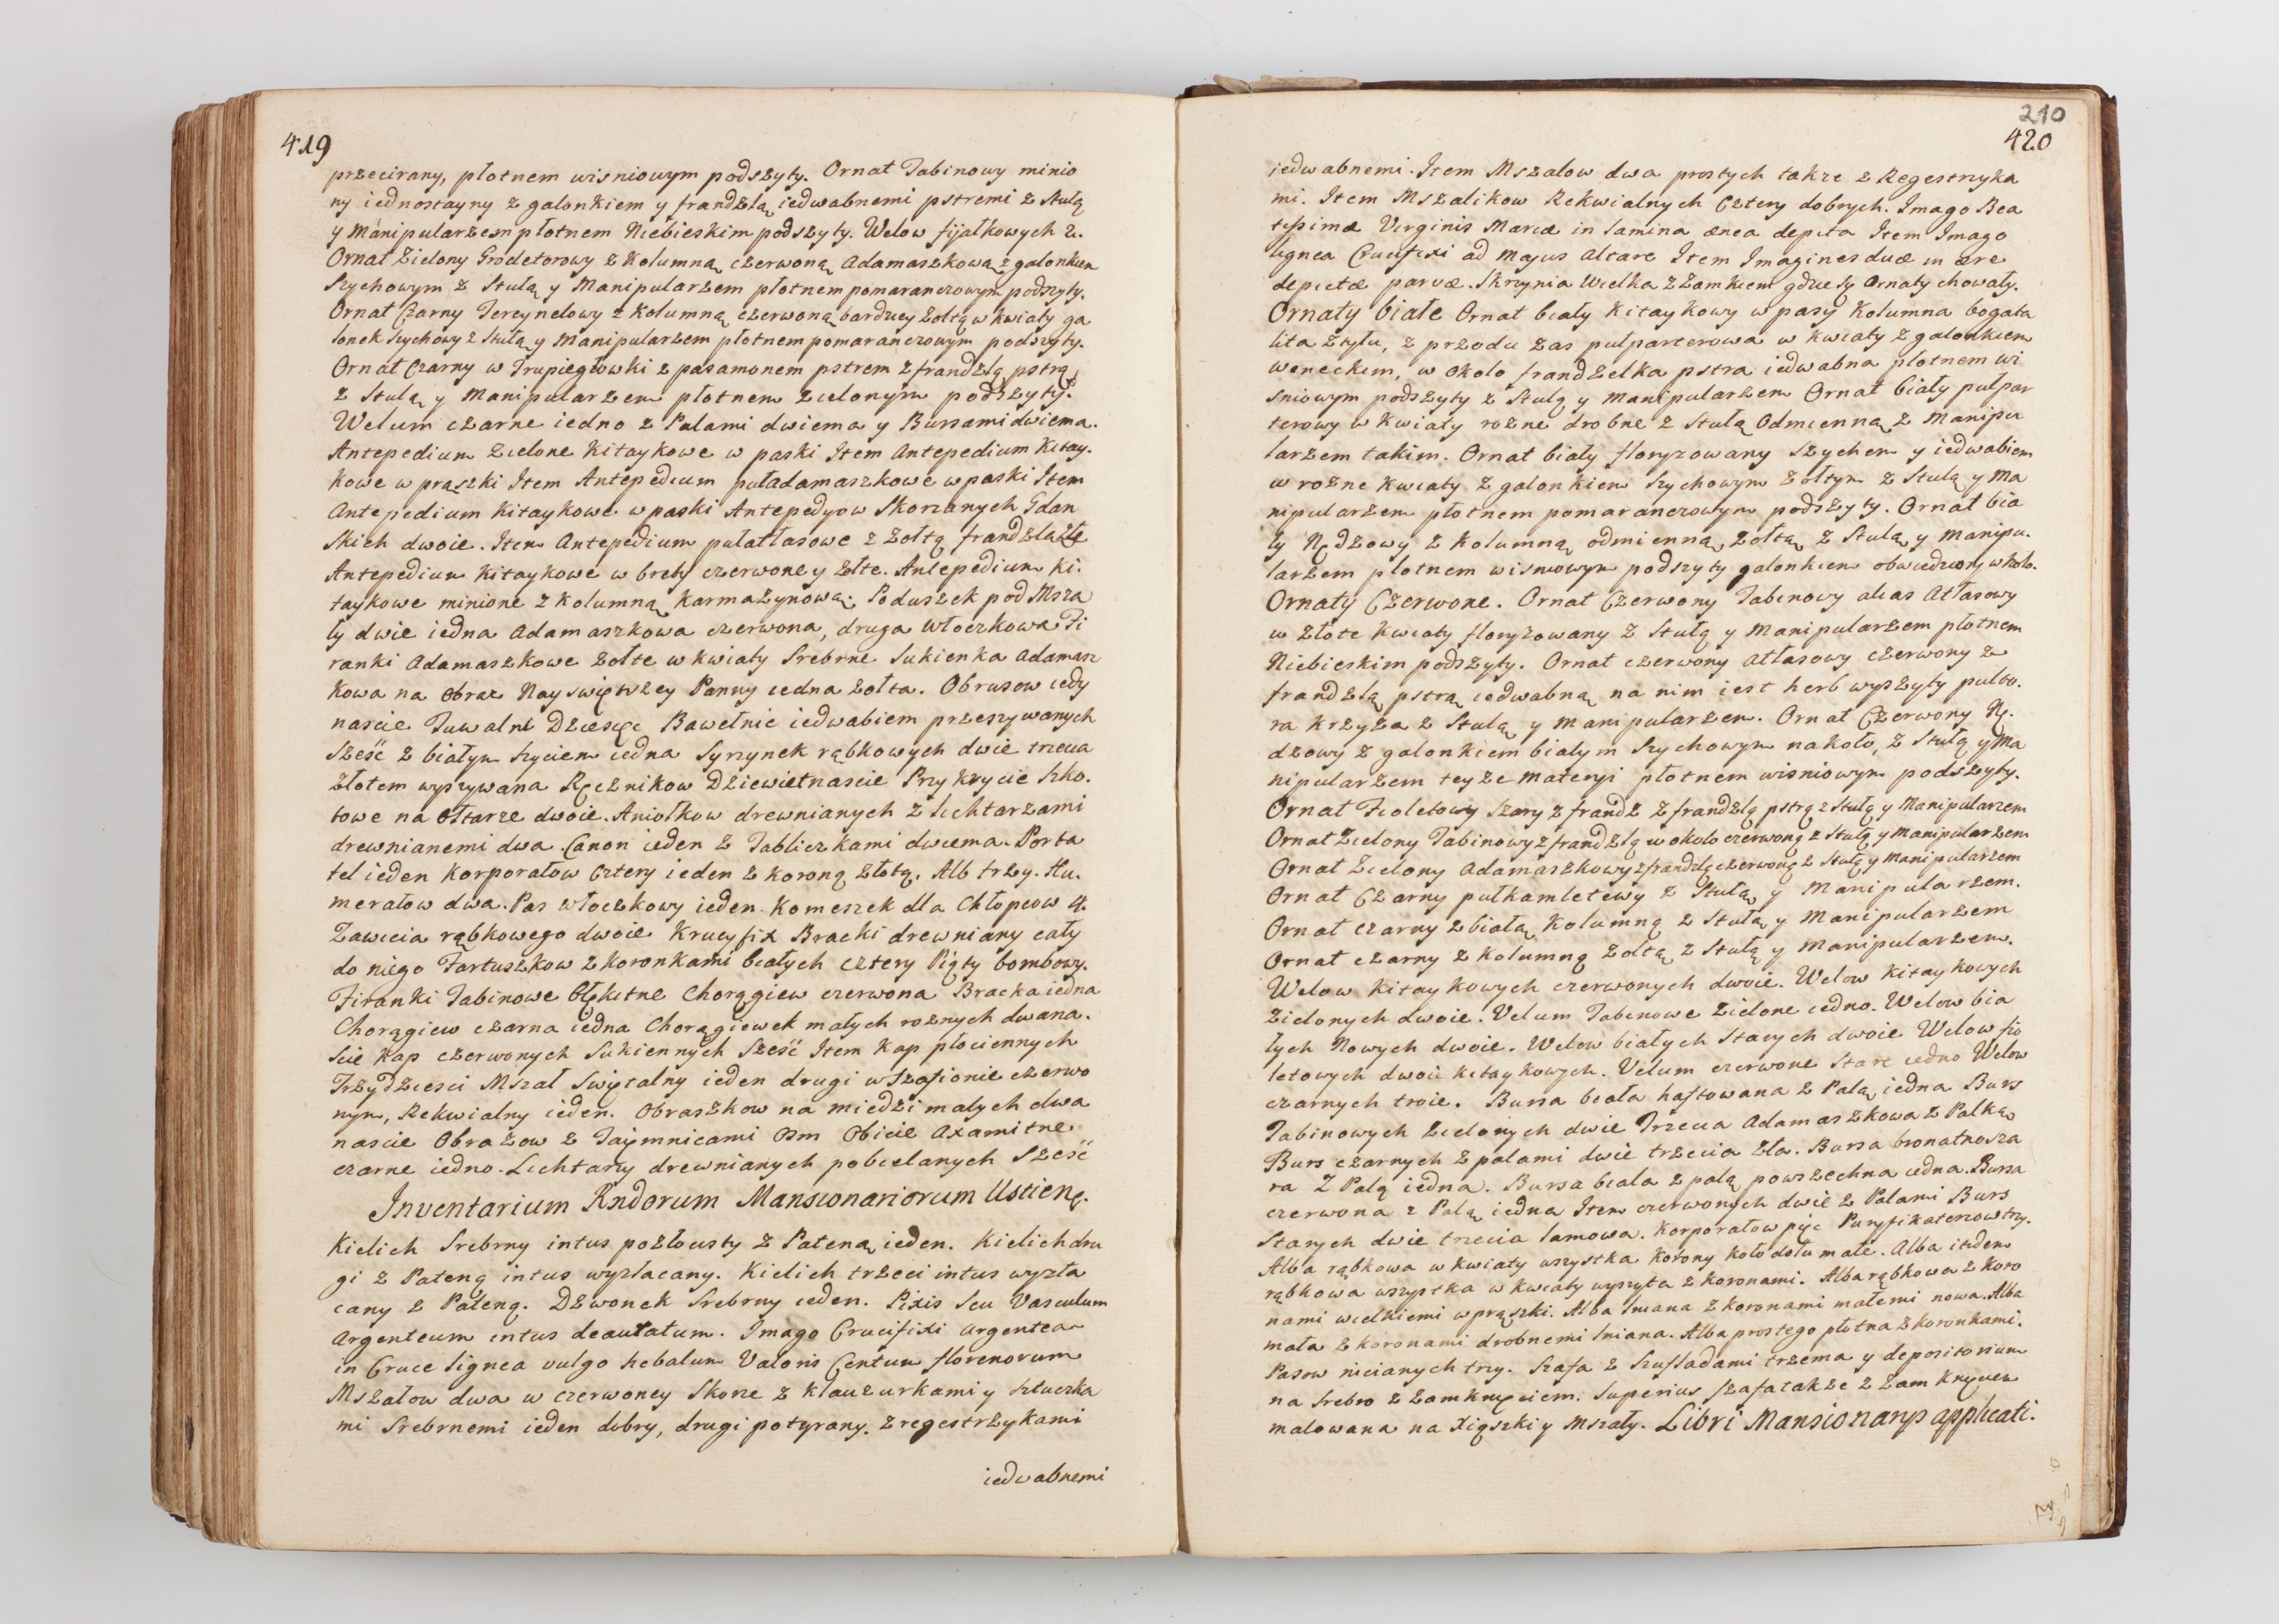 419
przecirany, płotnem wisniowym podszyty. Ornat Tabinowy minio
ny iednostayny z galonkiem y frandzlą iedwabnemi pstremi z Stulą
y Manipularzem płotnem Niebieskim podszyty. Welow fijałkowych 2.
Ornat Zielony Grodetorowy z Kolumną czerwoną Adamaszkową z galonkiem
Szychowym z Stulą y Manipularzem płotnem pomaranczowym podszyty.
Ornat Czarny Tercynelowy z Kolumną czerwoną barduey zołtą w kwiaty ga
lonek Szychowy z Stułą y Manipularzem płotnem pomaranczowym podszyty.
Ornat Czarny w Trupiegłowki z pasamonem pstrem z frandzlą pstrą
z Stulą y Manipularzem płotnem zielonym podszyty.
Welum czarne iedno z Palami dwiema y Bursami dwiema.
Antepedium zielone Kitaykowe w paski Item Antepedium Kitay.
kowe w prązki Item Antepedium puładamaszkowe w paski Item
Antepedium Kitaykowe w paski Antepedyow Skorzanych Gdan
skich dwoie. Item Antepedium pułatłasowe z zołtą frandzlą
Antepedium Kitaykowe w brety czerwone y złte. Antepedium ki.
taykowe minione z Kolumną Karmazynową. Poduszek pod Msza
ły dwie iedna Adamaszkowa czerwona, druga włoczkowa Fi
ranki Adamaszkowe zołte w kwiaty Srebrne Sukienka Adamasz
kowa na Obraz Nayswiętszey Panny iedna zołta. Obrusow iedy
nascie Tuwalni Dziesięc Bawełnic iedwabiem przeszywanych
Sześć z białym szyciem iedna Syrzynek rąbkowych dwie trzecia
złotem wyszywana Ręcznikow Dziewietnascie Przykrycie Szko.
towe na Ołtarze dwoie. Aniołkow drewnianych z lichtarzami
drewnianemi dwa. Canon ieden z Tabliczkami dwiema. Porta
tel ieden Korporałow Cztery ieden z koroną złotą. Alb trzy. Hu.
merałow dwa. Pas włoczkowy ieden. Komeszek dla Chłopcow 4.
Zawicia rąbkowego dwoie Krucyfix Bracki drewniany cały
do niego Fartuszkow z koronkami białych cztery Piąty bombowy.
Firanki Tabinowe błękitne Chorągiew czerwona Bracka iedna
Chorągiew czarna iedna Chorągiewek małych roznych dwana.
scie Kap czerwonych Sukiennych Sześć Item Kap płociennych
Trzydziesci Mszał Swiętalny ieden drugi w Szafionie czerwo
nym, Rekwialny ieden. Obraszkow na miedzi małych dwa
nascie Obrazow z Taiymnicami Osm Obicie Axamitne
czarne iedno. Lichtarzy drewnianych pobielanych Sześć
Inventarium Rndorum Mansionariorum Ustien.
Kielich Srebrny intus pozłocisty z Pateną ieden. Kielich dru
gi z Pateną intus wyzłacany. Kielich trzeci intus wyzła
cany z Pateną. Dzwonek Srebrny ieden. Pixis Seu Vasculum
Argenteum intus deautatum. Imago Crucifixi argentea
in Cruce lignea vulgo hebalum Valoris Centum florenorum
Mszałow dwa w czerwoney Skorze z klauzurkami y sztuczka
mi Srebrnemi ieden dobry, drugi potyrany. z regestrzykami
iedwabnemi
210
420
iedwabnemi. Item Mszalow dwa prostych takze z Regestrzyka
mi. Item Mszalikow Rekwialnych Cztery dobrych. Imago Bea
tissimæ Virginis Mariæ in lamina ænea depicta Item Imago
lignea Crucifixi ad Majus Altare Item Imagines duæ in ære
depictæ parvæ. Skrzynia Wielka z Zamkiem gdzie Ornaty chowały.
Ornaty białe Ornat biały Kitaykowy w pasy Kolumna bogata
lita z tyłu, z przodu zas pulparterowa w kwiaty z galonkiem
weneckim, w około frandzelka pstra iedwabna płotnem wi
sniowym podszyty z Stulą y Manipularzem Ornat biały pulpar
terowy w kwiaty rozne drobne z Stułą Odmienną z Manipu
larzem takim. Ornat biały floryzowany Szychem y iedwabiem
w rozne kwiaty z galonkiem Szychowym zołtym z Stulą y Ma
nipularzem płotnem pomaranczowym podszyty. Ornat bia
ły Nędzowy z Kolumną odmienną zołtą z Stulą y Manipu.
larzem płotnem wisniowym podszyty galonkiem obwiedziony wkoło.
Ornaty Czerwone. Ornat Czerwony Tabinowy alias Atłasowy
w złote kwiaty floryzowany z Stułą y Manipularzem płotnem
Niebieskim podszyty. Ornat czerwony Atłasowy czerwony z
frandzlą pstrą iedwabną na nim iest herb wyszyty pułto.
ra krzyza z Stulą y Manipularzem. Ornat Czerwony Nę.
dzowy z galonkiem białym Szychowym nakoło, z Stułą y Ma
nipularzem teyze materyi płotnem wisniowym podszyty.
Ornat Fioletowy Szary z frandz z frandzlą pstrą z Stułą y Manipularzem
Ornat Zielony Tabinowy z frandzlą w około czerwoną z Stułą y Manipularzem
Ornat Zielony Adamaszkowy z frandzlą czerwoną z Stułą y Manipularzem
Ornat Czarny pułkamletowy z Stułą y Manipularzem.
Ornat czarny z białą Kolumną z Stułą y Manipularzem
Ornat czarny z Kolumną zołtą z Stułą y Manipularzem.
Welow Kitaykowych czerwonych dwoie. Welow Kitaykowych
Zielonych dwoie. Velum Tabinowe Zielone iedno. Welow bia
łych Nowych dwoie. Welow białych Starych dwoie Welow fio
letowych dwoie kitaykowych. Velum czerwone Stare iedno Welow
czarnych troie. Bursa biała haftowana z Palą iedna Burs
Tabinowych zielonych dwie Trzecia Adamaszkowa z Palką
Burs czarnych z palami dwie trzecia zła. Bursa bronatnosza
ra z Palą iedna. Bursa biała z palą powszechna iedna. Bursa
czerwona z Palą iedna Item czerwonych dwie z Palami Burs
Starych dwie trzecia lamowa. Korporałow pięc Puryfikaterzow trzy.
Alba rąbkowa w kwiaty wszystka Korony koło dołu małe. Alba
rąbkowa wszystka w kwiaty wyszyta z koronami. Alba rąbkowa z koro
nami wielkiemi w prążki. Alba lniana z koronami małemi nowa. Alba
mała z koronami drobnemi lniana. Alba prostego płotna z koronkami.
Pasow nicianych trzy. Szafa z Szufladami trzema y depositorium
na Srebro z zamknięciem. Superius Szafa takze z Zamknięciem
malowana na Xiąszki y Mszały. Libri Mansionarys applicati.